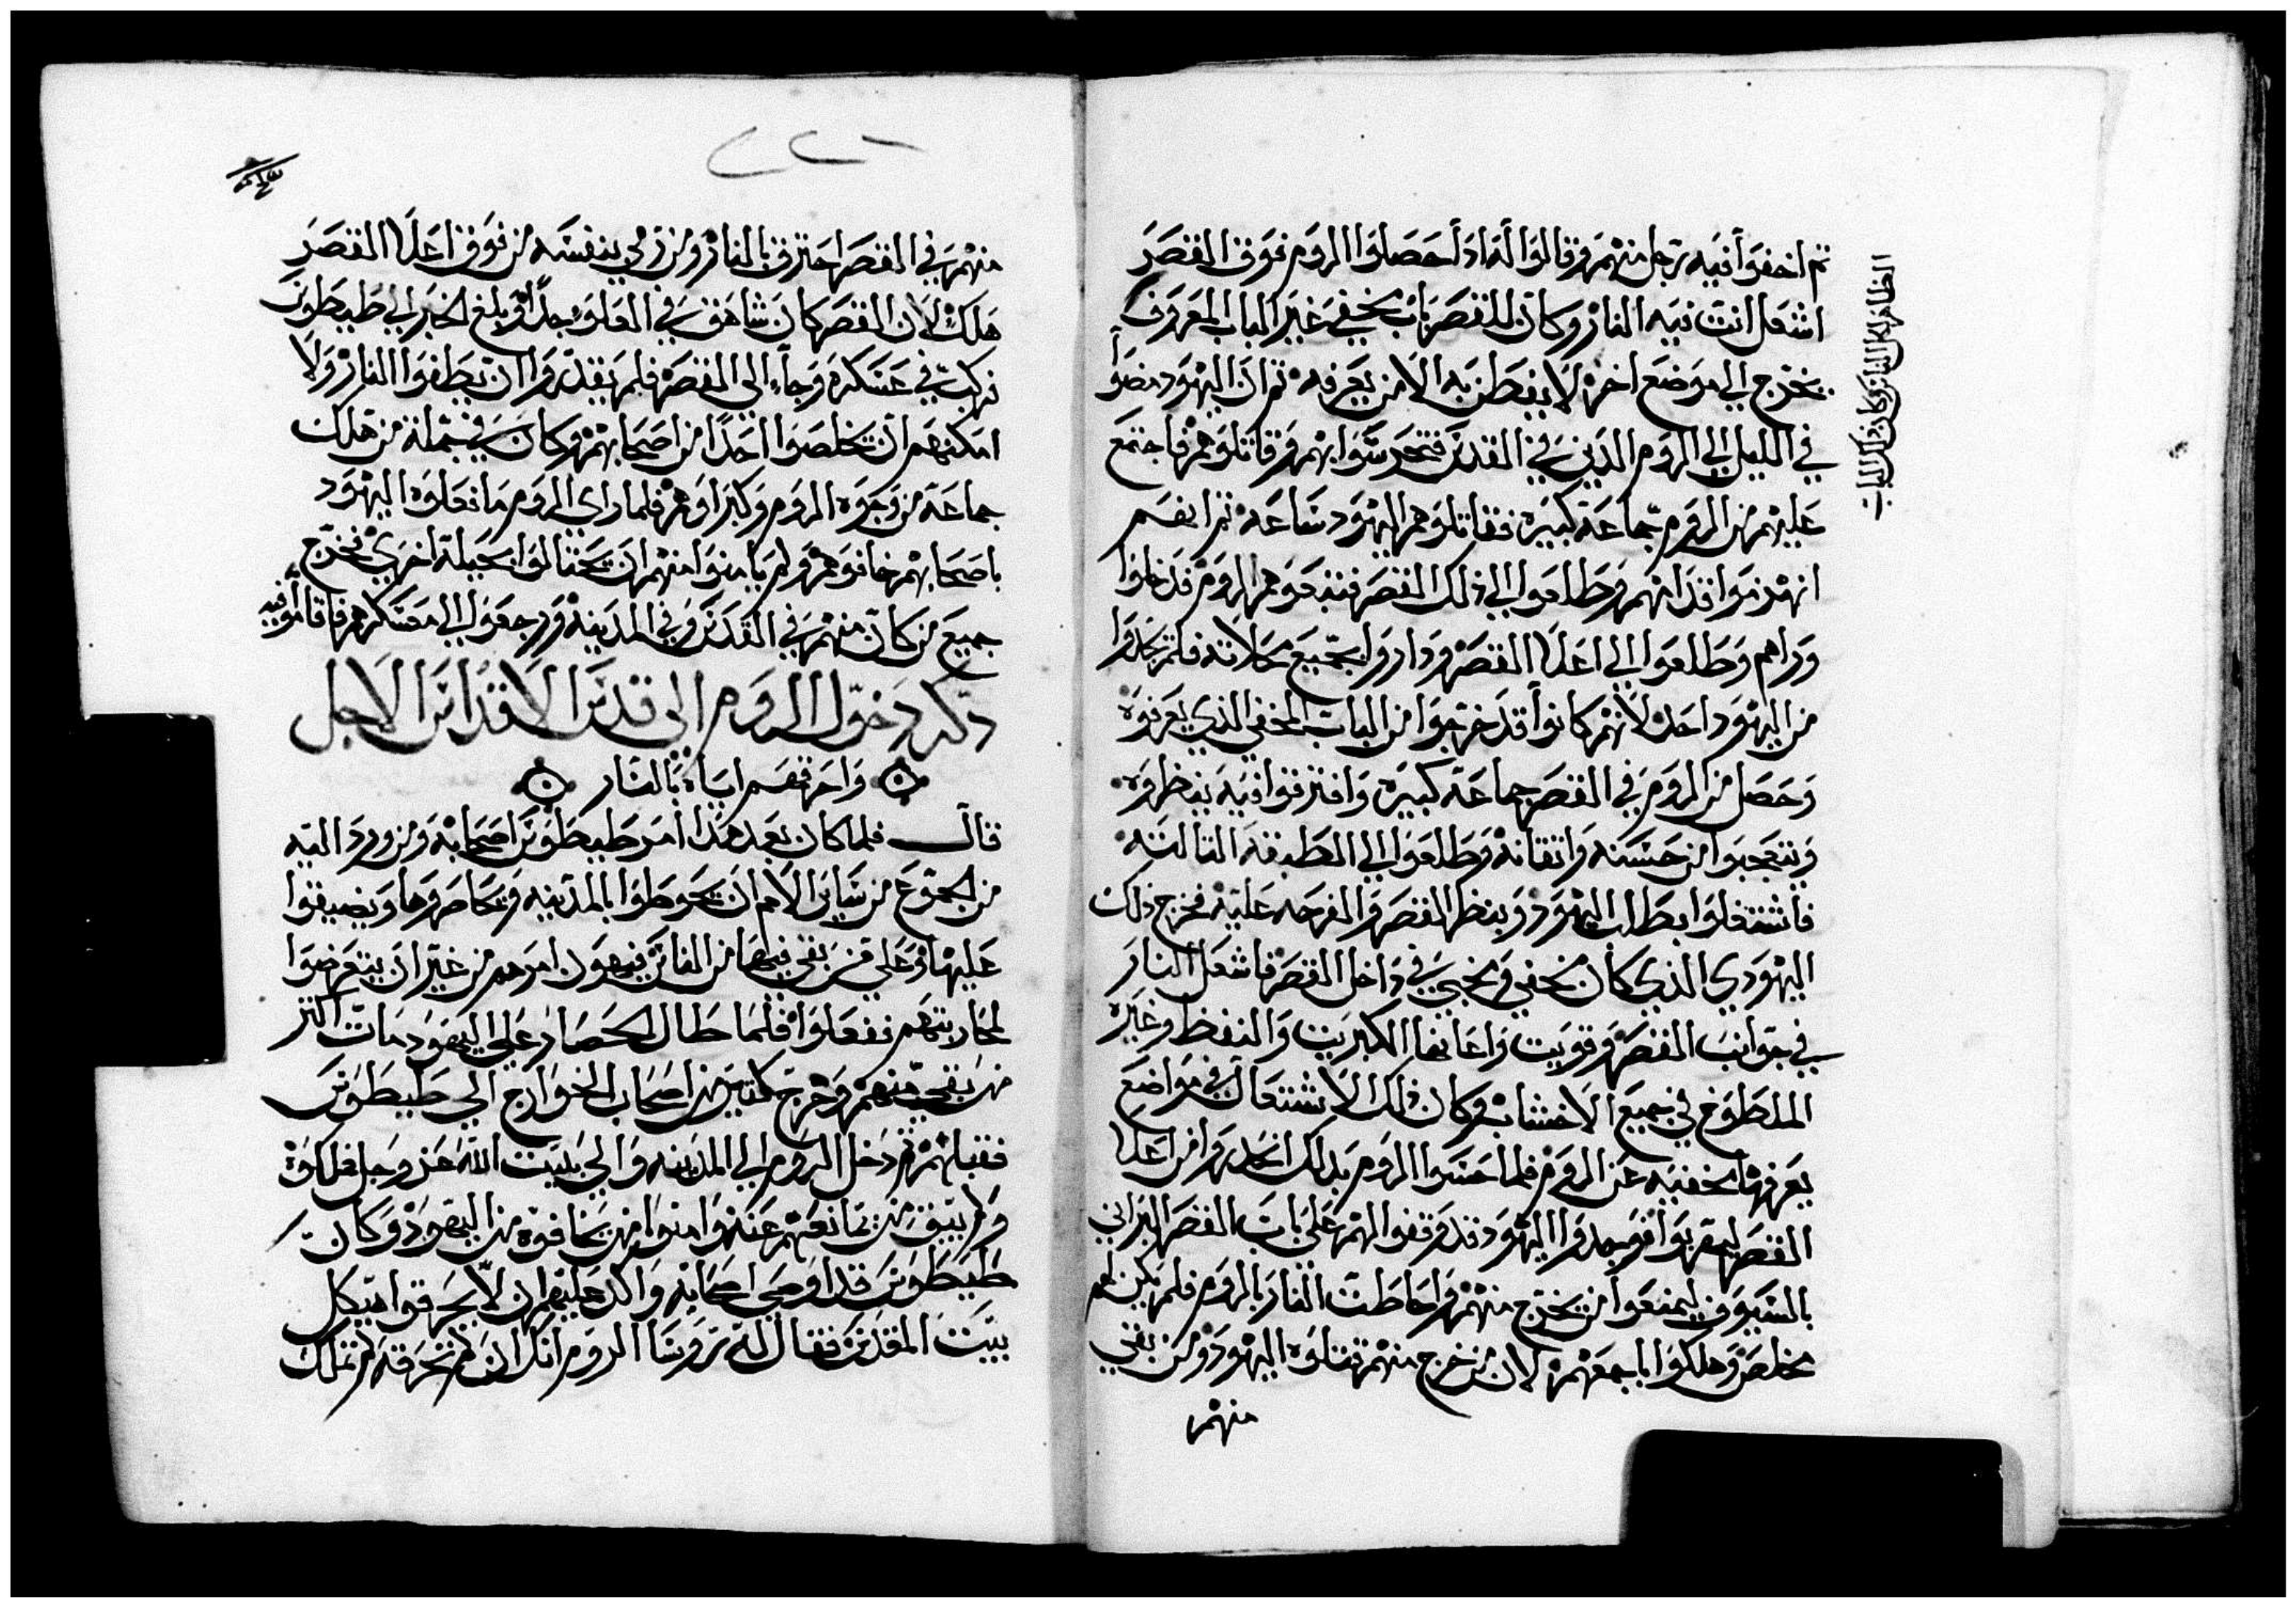 ثم اخفوا فيه رجل منهم وقالوا له اذا حصلوا الروم فوق القصر
اشعل انت فيه النار وكان للقصر باب مخفي غير الباب المعروف
يخرج الي موضع اخر لا يفطن به الا من يعرفه ثم ان اليهود مضوا
في الليل الي الروم الذين في القدس فتحرشوا بهم وقاتلوهم فاجتمع
عليهم من الروم جماعة كبيره فقاتلوهم اليهود ساعه ثم انهم
انهزموا قدامهم وطلعوا الي ذلك القصر فتبعوهم الروم فدخلوا
وراهم وطلعوا الي اعلا القصر وداروا بجميع محلاته فلم يجدوا
من اليهود احد لانهم كانوا قد خرجوا من الباب المخفي الذي يعرفوه
وحصل من الروم في القصر جماعة كبيره وافترقوا فيه ينظروه
ويتعجبوا من حسنه واتقانه وطلعوا الي الطبقه الثالثه
فاشتغلوا بطلب اليهود وبنظر القصر والفرجه عليه فخرج ذلك
اليهودي الذي كان مخفي مخبي في داخل القصر فاشعل النار
في جوانب القصر وقويت واعانها الكبريت والنفط وغيره
الملطوخ في جميع الاخشاب وكان ذلك الاشتعال في مواضع
يعرفها مخفيه عن الروم فلما احسوا الروم بذلك انحدروا من اعلا
القصر ليهربوا فوجدوا اليهود قد وقفوا لهم علي باب القصر البراني
بالسيوف ليمنعوا من يخرج منهم واحاطت النار بالروم فلم يكن لهم
مخلص وهلكوا باجمعهم لان من خرج منهم قتلوه اليهود ومن بقي
منهم
الظاهر لكل الناس وكان ذلك الباب
٢٢٦
منهم في القصر احترق بالنار ومن رمي بنفسه من فوق اعلا القصر
هلك لان القصر كان شاهق في العلو جدا وبلغ الخبر الي طيطوس
فركب في عسكره وجاء الي القصر فلم يقدروا ان يطفوا النار ولا
امكنهم ان يخلصوا احدا من اصحابهم وكان في جملة من هلك
جماعة من وجوه الروم وكبراوهم فلما راي الروم ما فعلوه اليهود
باصحابهم خافوهم ولم يامنوا منهم ان يحتالوا بحيلة اخري فخرج
جميع من كان منهم في القدس وفي المدينه ورجعوا الي معسكرهم فاقاموا فيه
ذكر دخول الروم الي قدس الاقداس الاجل
واحراقهم اياه بالنار
قال فلما كان بعد هذا امر طيطوس اصحابه ومن ورد اليه
من الجموع من ساير الامم ان يحوطوا بالمدينه ويحاصروها ويضيقوا
عليها وعلي من بقي فيها من الناس فيهون امرهم من غير ان يتعرضوا
لمحاربتهم ففعلوا فلما طال الحصار علي اليهود مات اكثر
من بقي منهم وخرج كثير من اصحاب الخوارج الي طيطوس
فقبلهم ثم دخل الروم الي المدينه والي بيت الله عز وجل فملكوه
ولم يبق من يمانعهم عنه وامنوا من يخافوه من اليهود وكان
طيطوس قد اوصي اصحابه واكد عليهم ان لا يحرقوا هيكل
بيت المقدس فقال له روسا الروم انك ان لم تحرقه لم تملك